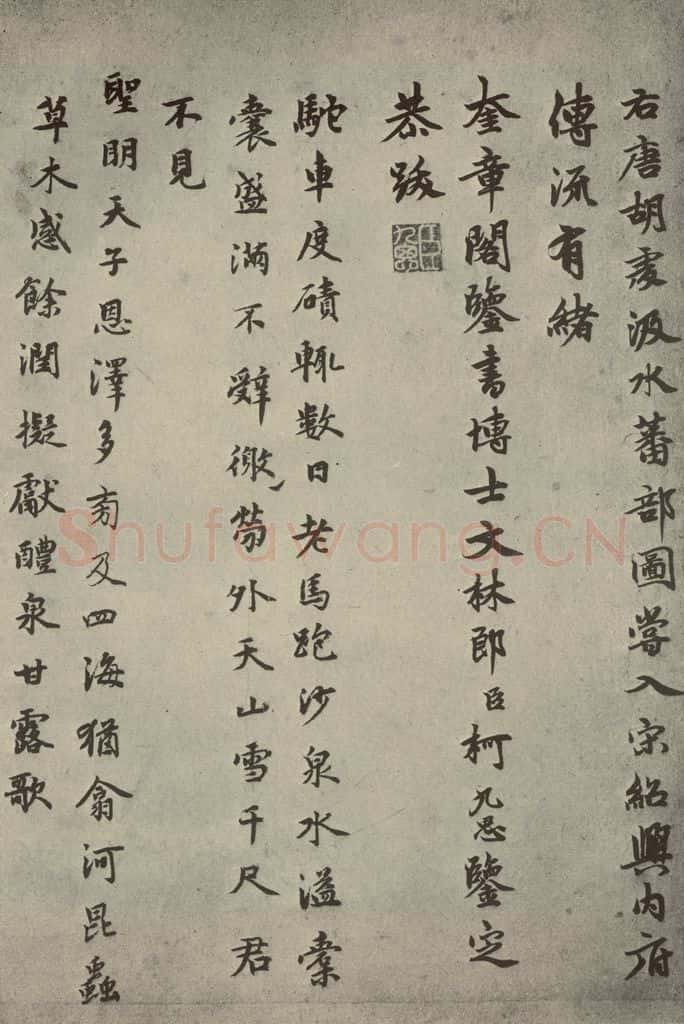 右唐胡虔汲水蕃部圖嘗入宋紹興內府
傳流有緒
奎章閣鑒書博士文林郎臣柯九思鑒定
恭跋
駝車度磧輒數日老馬跑沙泉水溢橐
囊盛滿不辭徼勞外天山雪千尺君
不見
聖明天子恩澤多旁及四海猶翕河昆蟲
草木感餘潤擬獻醴泉甘露歌
Shufawang.CN